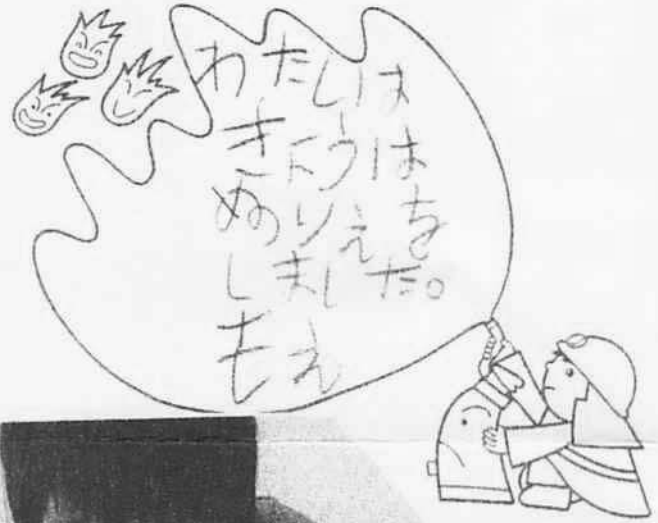 わたしは
きょうは
ぬりえを
しました。
もえ